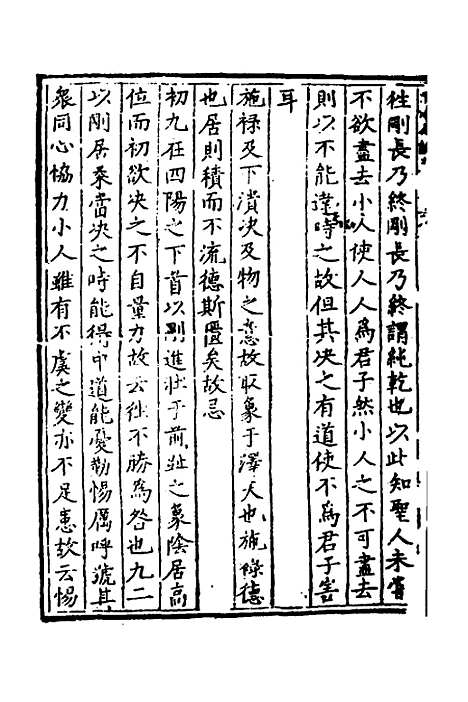 往剛長乃終剛長乃終謂純乾也以此知聖人未嘗
不欲盡去小人使人人為君子然小人之不可盡去
則以不能違時之故但其决之有道使不為君子害
耳
施祿及下潰决及物之意故取象于澤天也施祿德
也居則積而不流德斯匱矣故忌
初九在四陽之下首以剛進壮于前趾之象陰居高
位而初欲决之不自量力故云徃不勝為咎也九二
以剛居柔當决之時能得中道能憂勤惕厲呼號其
衆同心協力小人雖有不虞之變亦不足患故云惕